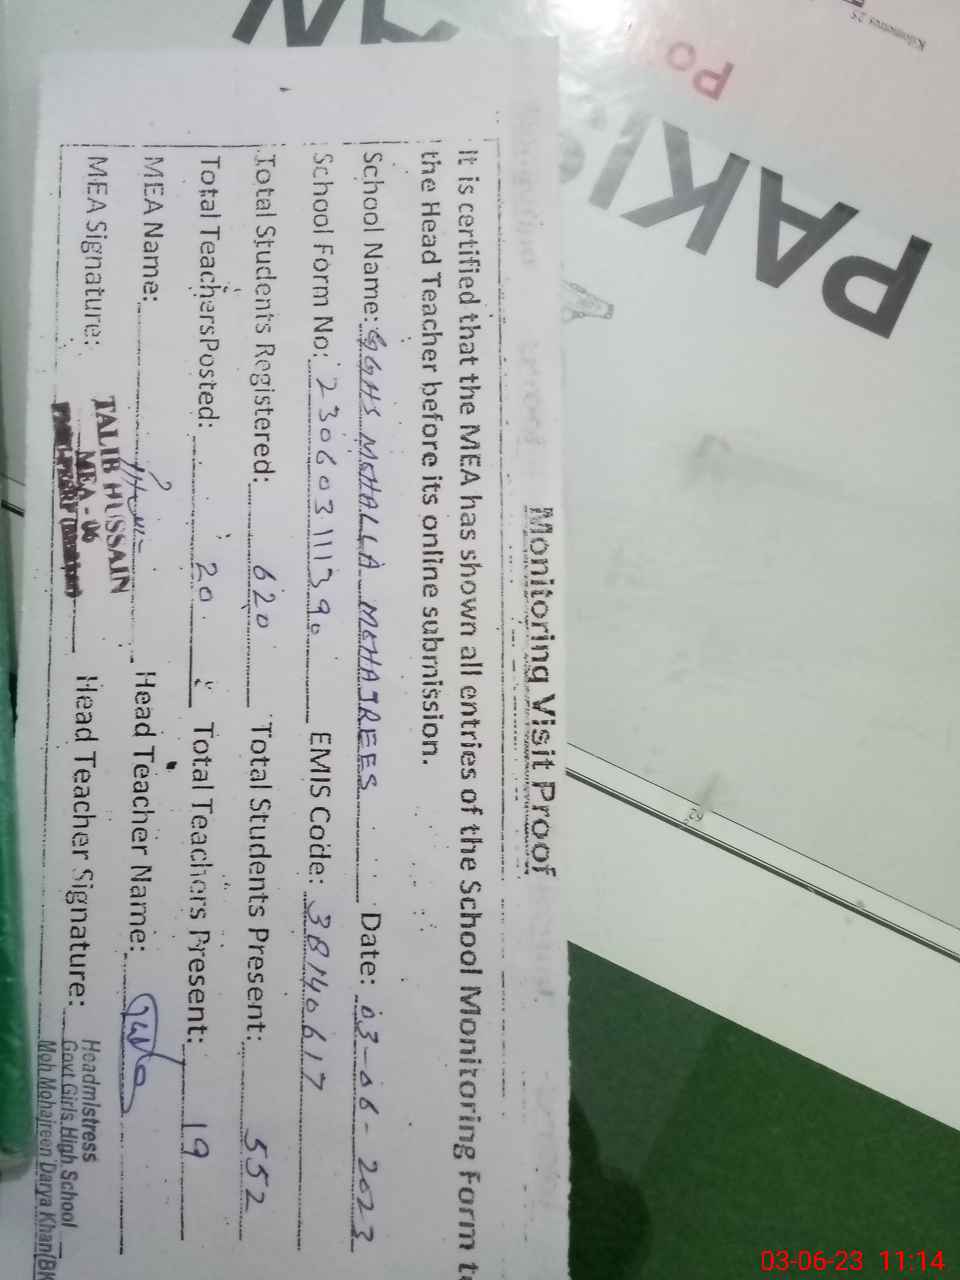 Monitoring Visit Proof
It is certified that the MEA has shown all entries of the School Monitoring Form to
the Head Teacher before its online submission.
School Name: GGHS MOHALLA MOHAJREES Date: 03-06-2023
School Form No: 230603111390 EMIS Code: 38140617
Total Students Registered: 620 Total Students Present: 552
Total TeachersPosted: 20 Total Teachers Present: 19
MEA Name: Head Teacher Name:
MEA Signature: Head Teacher Signature:
TALIB HUSSAIN
MEA - 06
Headmistress
Govt Girls High School
Moh Mohajreen Darya Khan(BK
PAKIS
Po
Kilometres 25
03-06-23 11:14